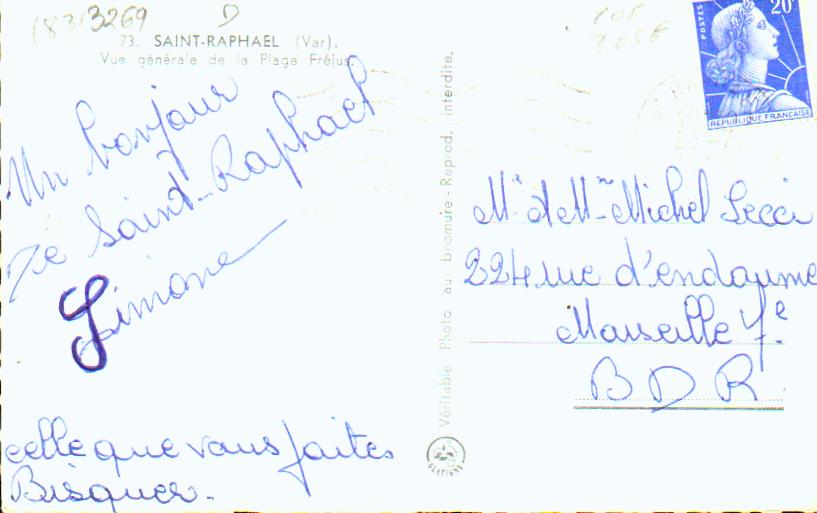 (83) 3269 D
73. SAINT-RAPHAEL (Var).
Vue générale de la Plage Fréjus.
Un bonjour
de Saint-Raphael
Simone
celle que vous faites
Bisquer.
Véritable Photo au bromure - Reprod. interdite.
POSTES
20F
REPUBLIQUE FRANÇAISE
Mr et Mme Michel Lecci
224 rue d'endoume
Marseille 7e
BDR